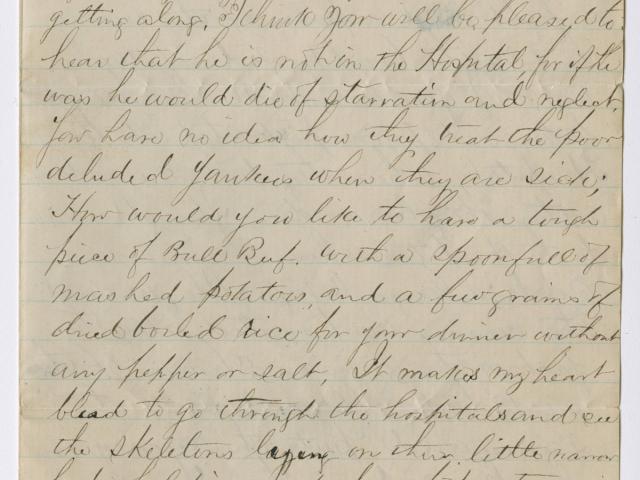 getting along. I think you will be pleased to
hear that he is not in the Hospital, for if he
was he would die of starvation and neglect.
You have no idea how they treat the poor
deluded Yankees when they are sick;
How would you like to have a tough
piece of Bull Beef. with a spoonfull of
mashed potatoes, and a few grains of
dried boiled rice for your dinner without
any pepper or salt. It makes my heart
blead to go through the hospitals and see
the skeletons laying on their little narrow